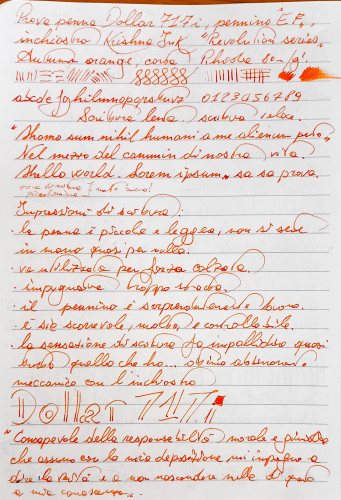 Prova penna Dollar 717i, pennino "EF",
inchiostro Krishna Ink "Revolution series
Autumn orange, carta Rhodia 80 g.
abcdefghilmnopqrstuvz 0123456789
Scrittura lenta scrittura veloce.
"Homo sum nihil humani a me alienum puto"
Nel mezzo del cammin di nostra vita.
Hello world. Lorem ipsum. sa sa prova.
Impressioni di scrittura:
. la penna è piccola e leggera, non si sente
in mano quasi per nulla.
. va utilizzata per forza calzata.
. impugnatura troppo stretta.
. il pennino è sorprendentemente buono.
. è sia scorrevole, morbido, e controllabile.
. la sensazione di scrittura fa impallidire quasi
tutto quello che ho... ottimo abbinamento
meccanico con l'inchiostro
Dollar 717i
"Consapevole della responsabilità morale e giuridica
che assumo con la mia deposizione mi impegno a
dire la verità e a non nascondere nulla di quanto
a mia conoscenza."